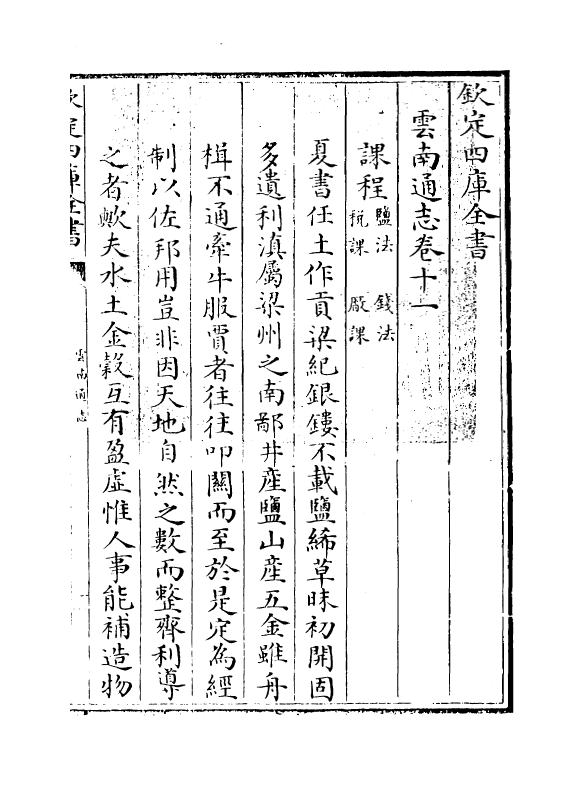 欽定四庫全書
雲南通志卷十一
課程 鹽法 錢法
稅課 厰課
夏書任土作貢梁紀銀鏤不載鹽絺草昧初開固
多遺利滇屬梁州之南鄙井産鹽山産五金雖舟
楫不通牽牛服賈者往往叩關而至於是定為經
制以佐邦用豈非因天地自然之數而整齊利導
之者歟夫水土金榖互有盈虚惟人事能補造物
欽定四庫全書
雲南通志